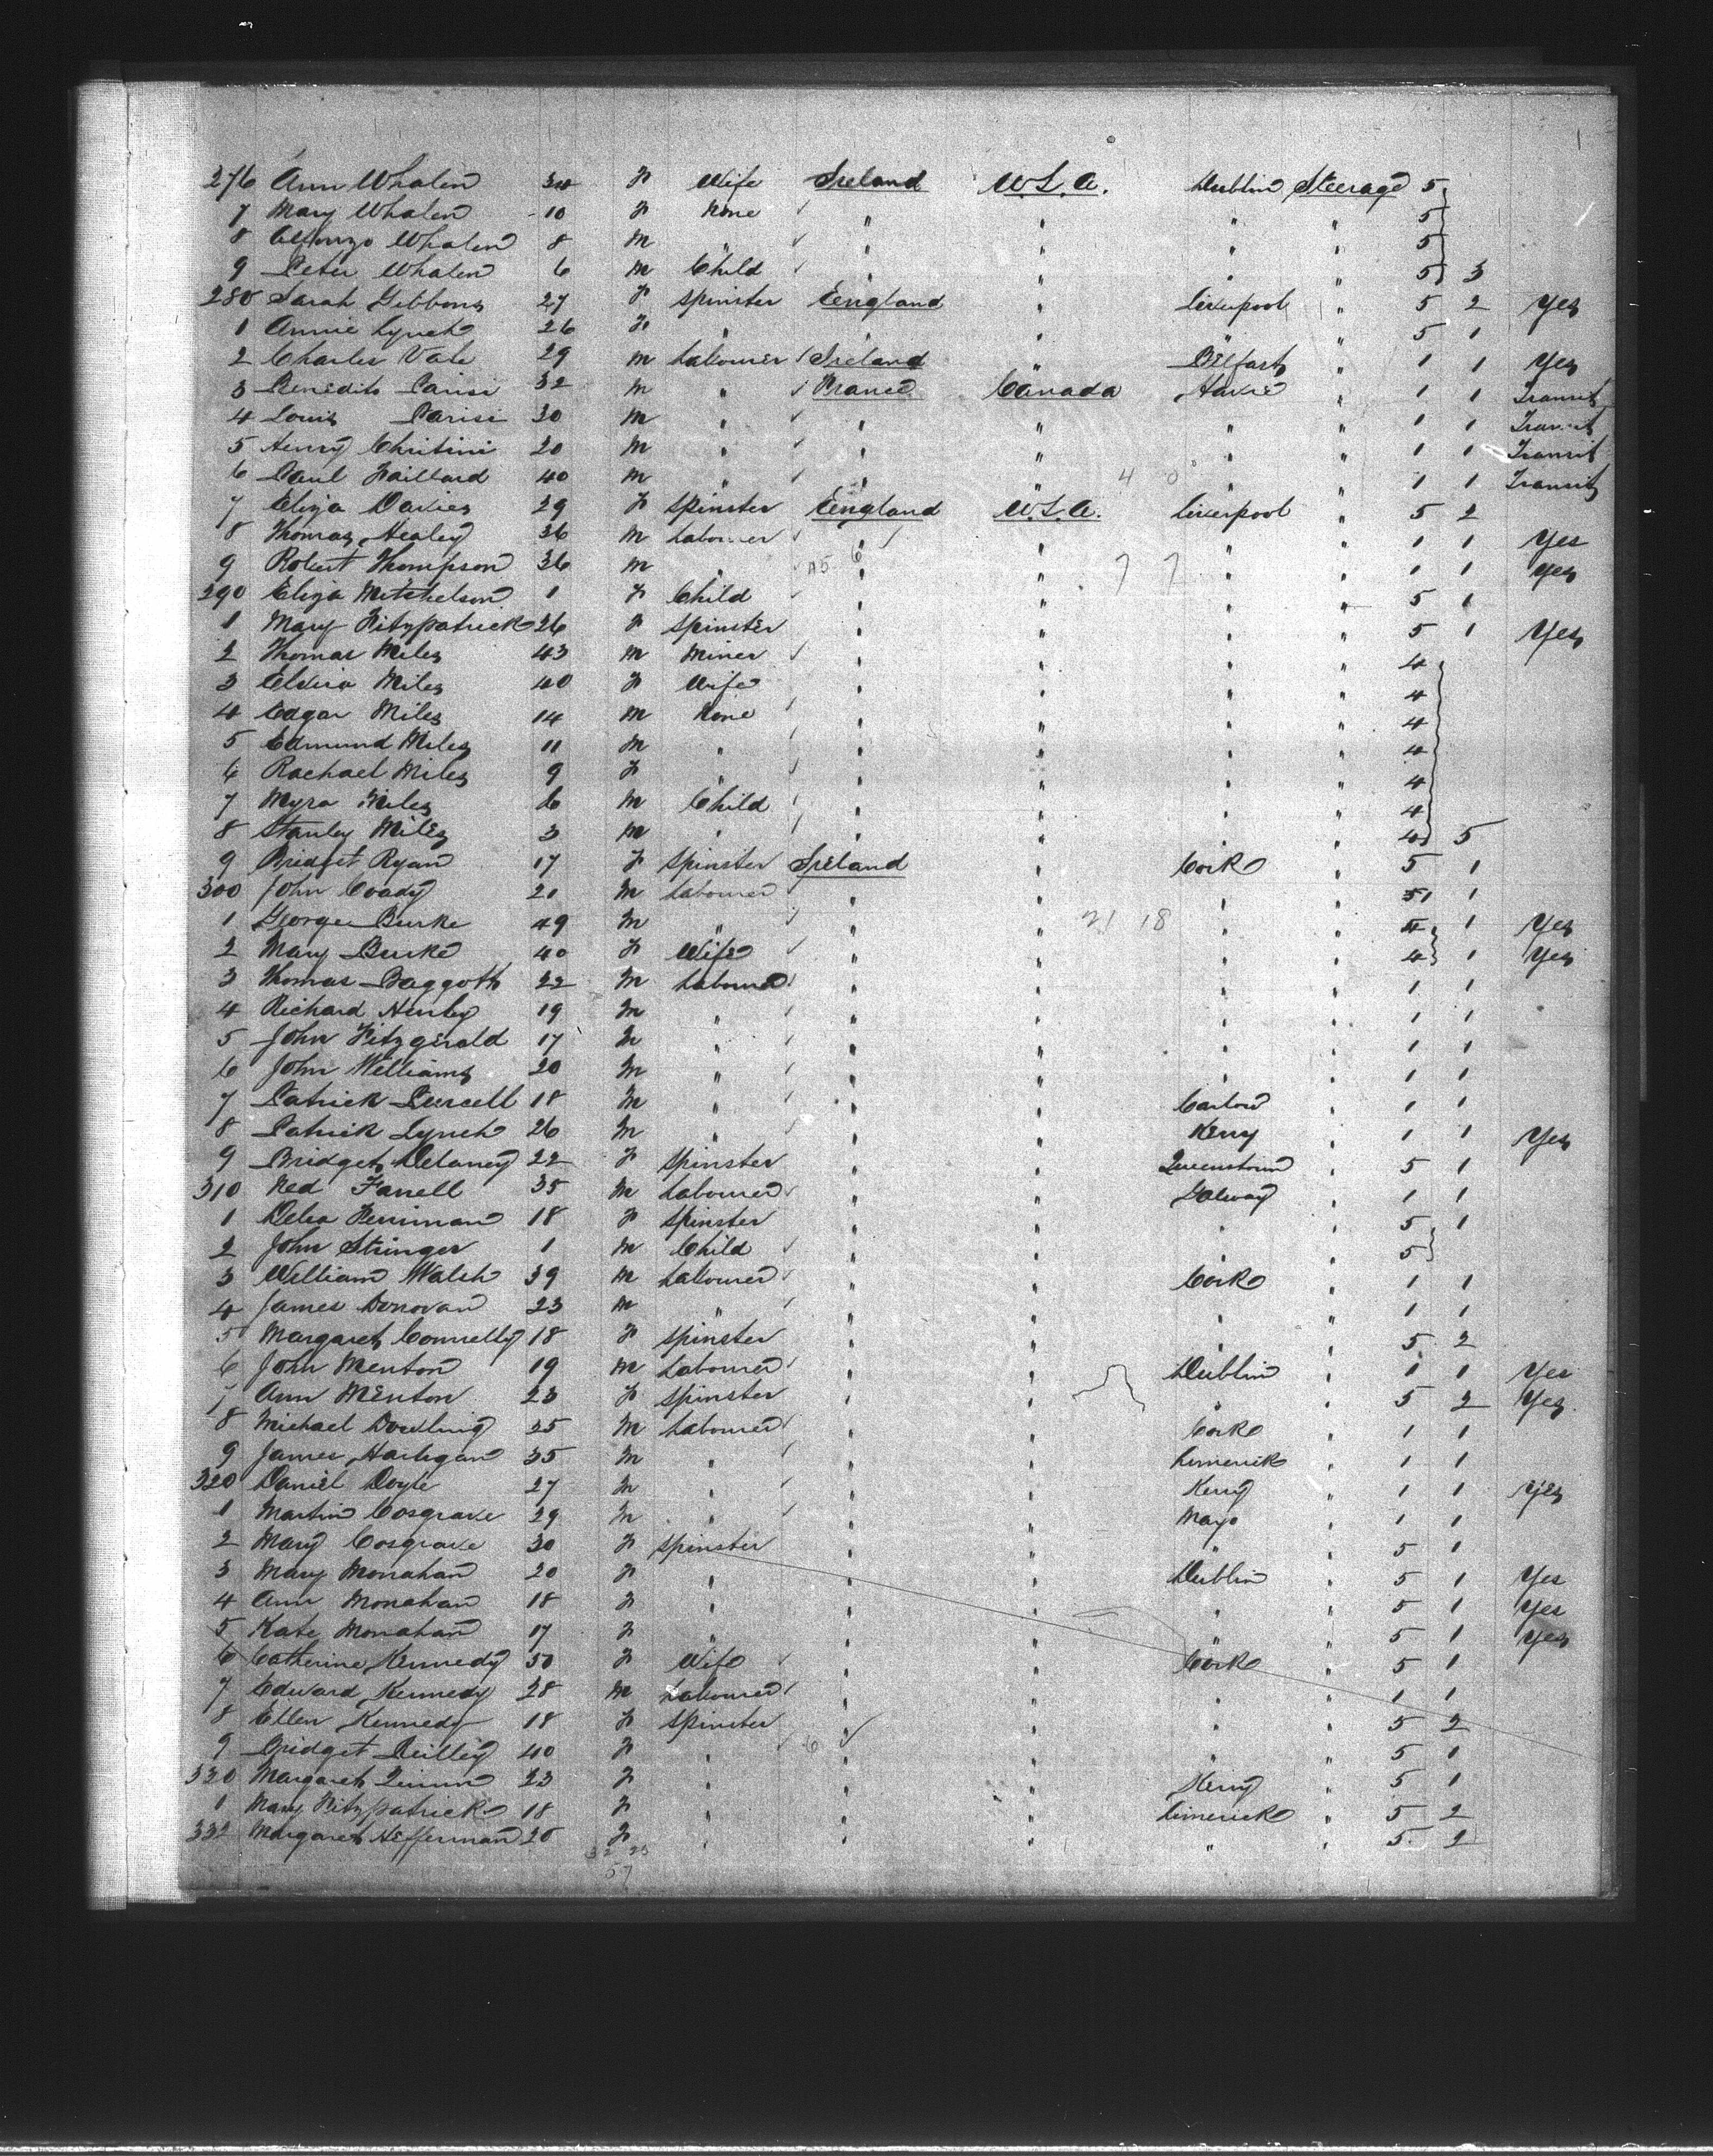 276 Ann Whalen 34 F Wife Ireland U.S.A. Dublin Steerage 5
7 Mary Whalen 10 F None " " " " 5
8 Alfonzo Whalen 8 M " " " " " 5
9 Peter Whalen 6 M Child " " " " 5 3
280 Sarah Gibbons 27 F Spinster England " Liverpool " 5 2 Yes
1 Annie Lynch 26 F " " " " " 5 1
2 Charles Vale 29 M Labourer Ireland " Belfast " 1 1 Yes
3 Benedito Parisi 32 M " France Canada Havre " 1 1 Transit
4 Louis Parisi 30 M " " " " " 1 1 Transit
5 Henry Chritini 20 M " " " " " 1 1 Transit
6 Paul Faillard 40 M " " " " " 1 1 Transit
7 Eliza Davies 29 F Spinster England U.S.A. Liverpool " 5 2
8 Thomas Healey 36 M Labourer " " " " 1 1 Yes
9 Robert Thompson 36 M " " " " " 1 1 Yes
290 Eliza Mitchelson 1 F Child " " " " 5 1
1 Mary Fitzpatrick 26 F Spinster " " " " 5 1 Yes
2 Thomas Miles 43 M Miner " " " " 4
3 Elvira Miles 40 F Wife " " " " 4
4 Edgar Miles 14 M None " " " " 4
5 Edmund Miles 11 M " " " " " 4
6 Rachael Miles 9 F " " " " " 4
7 Myra Miles 6 M Child " " " " 4
8 Stanley Miles 3 M " " " " " 4 5
9 Bridget Ryan 17 F Spinster Ireland " Cork " 5 1
300 John Coady 21 M Labourer " " " " 1 1
1 George Burke 49 M " " " " " 4 1 Yes
2 Mary Burke 40 F Wife " " " " 4 1 Yes
3 Thomas Baggott 22 M Labourer " " " " 1 1
4 Richard Henley 19 M " " " " " 1 1
5 John Fitzgerald 17 M " " " " " 1 1
6 John Williams 20 M " " " " " 1 1
7 Patrick Purcell 18 M " " " Carlow " 1 1
8 Patrick Lynch 26 M " " " Kerry " 1 1 Yes
9 Bridget Delaney 22 F Spinster " " Queenstown " 5 1
310 Ned Farrell 35 M Labourer " " Galway " 1 1
1 Delia Perriman 18 F Spinster " " " " 5 1
2 John Stringer 1 M Child " " " " 5
3 William Walsh 39 M Labourer " " Cork " 1 1
4 James Donovan 23 M " " " " " 1 1
5 Margaret Connelly 18 F Spinster " " " " 5 2
6 John Menton 19 M Labourer " " Dublin " 1 1 Yes
7 Ann Menton 23 F Spinster " " " " 5 2 Yes
8 Michael Dowling 25 M Labourer " " Cork " 1 1
9 James Hartigan 35 M " " " Limerick " 1 1
320 Daniel Doyle 27 M " " " Kerry " 1 1 Yes
1 Martin Cosgrave 29 M " " " Mayo " 1 1
2 Mary Cosgrave 30 F Spinster " " " " 5 1
3 Mary Monahan 20 F " " " Dublin " 5 1 Yes
4 Ann Monahan 18 F " " " " " 5 1 Yes
5 Kate Monahan 17 F " " " " " 5 1 Yes
6 Catherine Kennedy 50 F Wife " " Cork " 5 1
7 Edward Kennedy 28 M Labourer " " " " 1 1
8 Ellen Kennedy 18 F Spinster " " " " 5 2
9 Bridget Reilley 40 F " " " " " 5 1
330 Margaret Quinn 23 F " " " Kerry " 5 1
1 Mary Fitzpatrick 18 F " " " Limerick " 5 2
332 Margaret Hefferman 20 F " " " " " 5 2
32 25
57